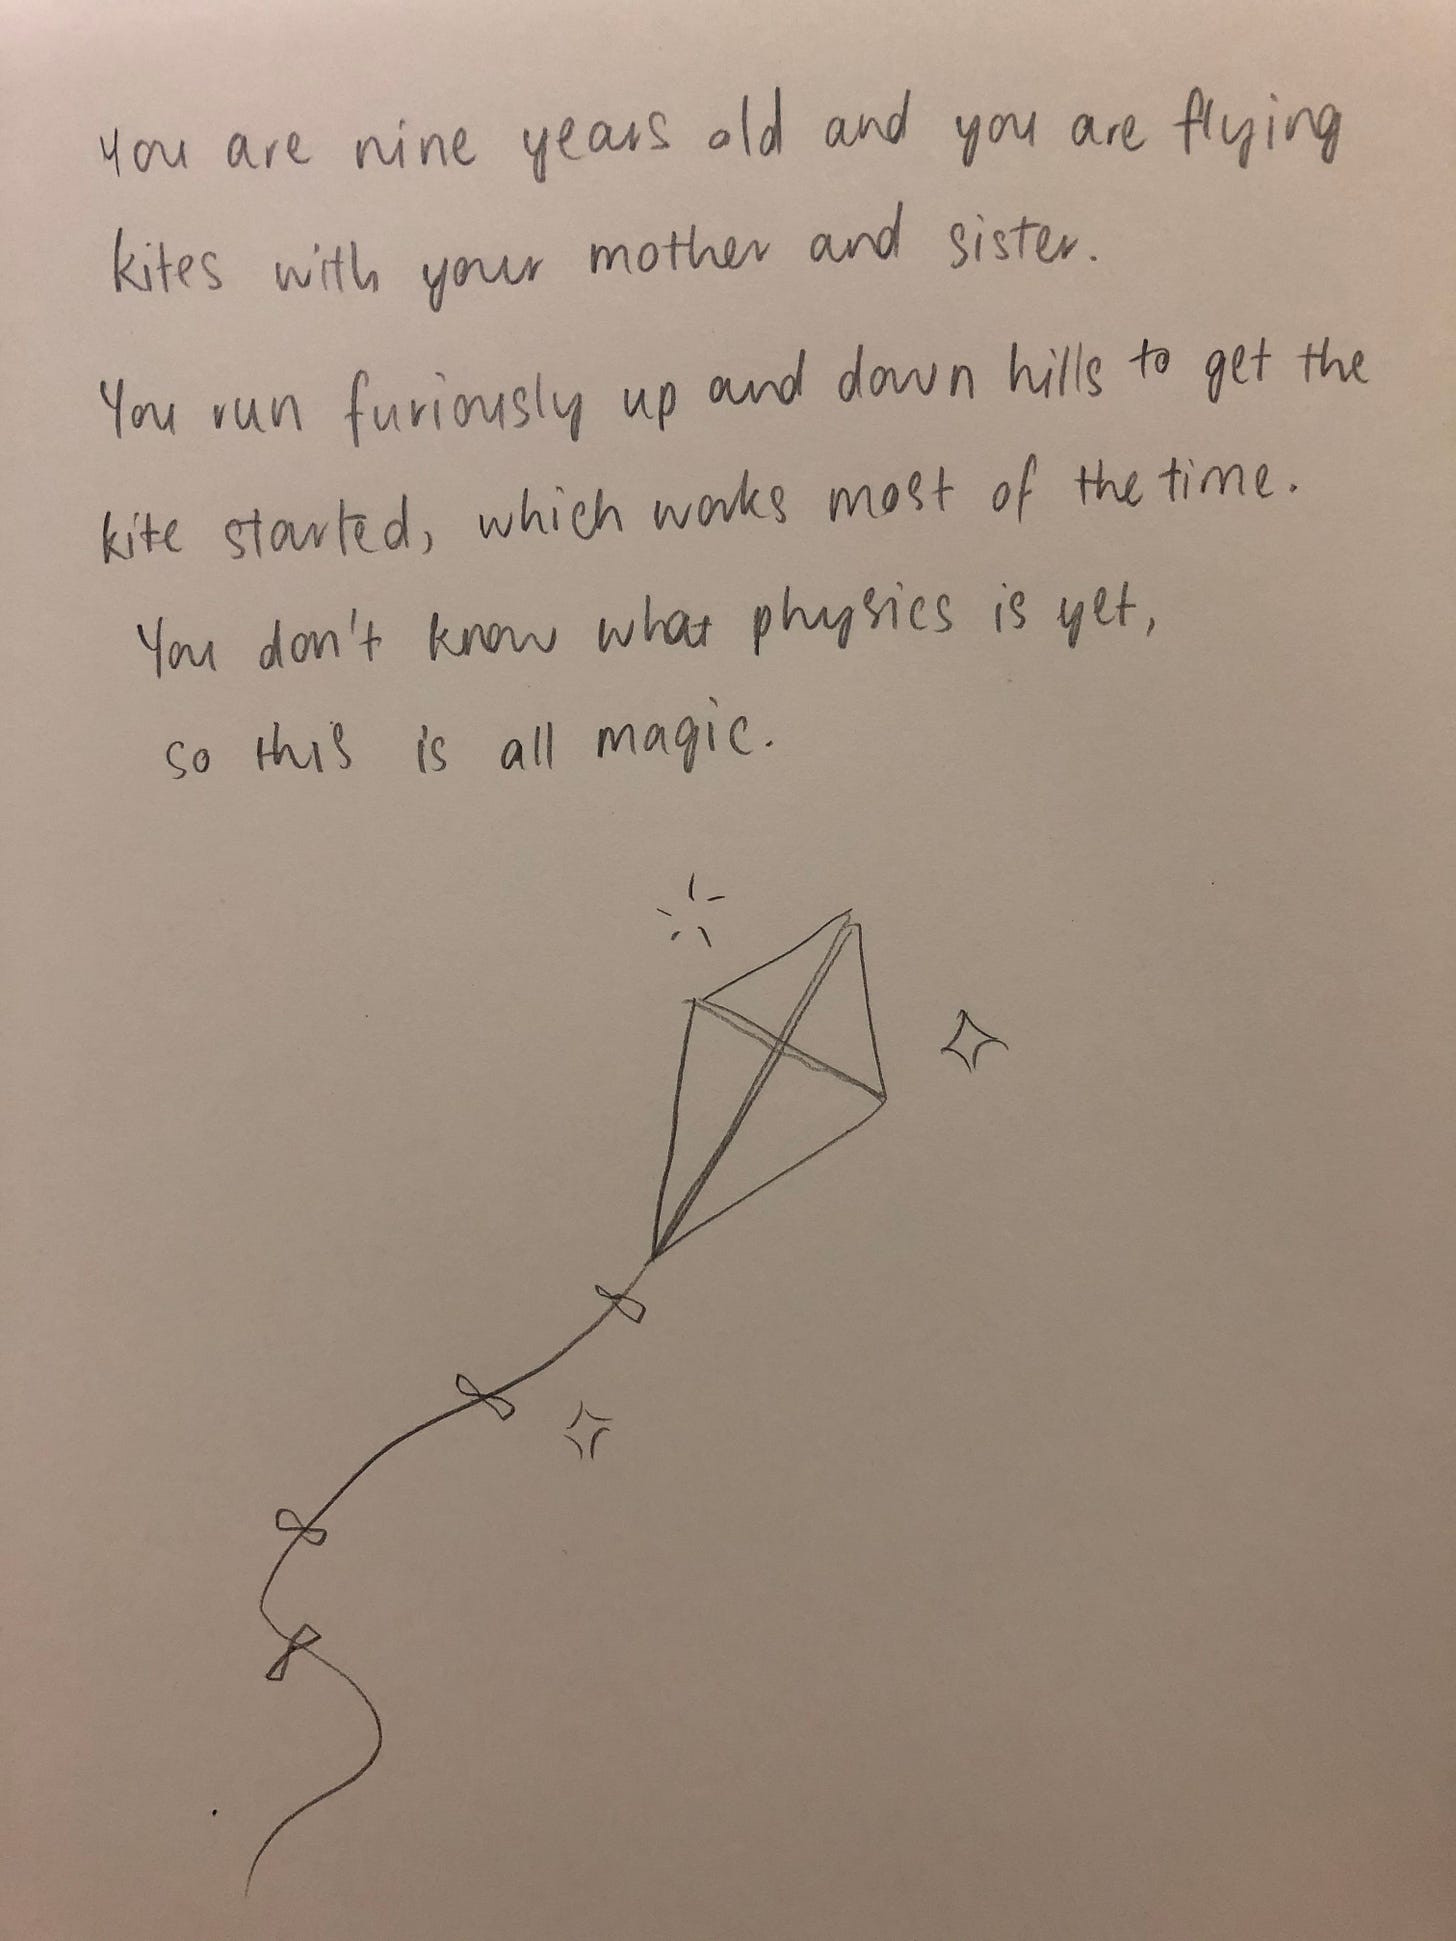 You are nine years old and you are flying
kites with your mother and sister.
You run furiously up and down hills to get the
kite started, which works most of the time.
You don't know what physics is yet,
so this is all magic.